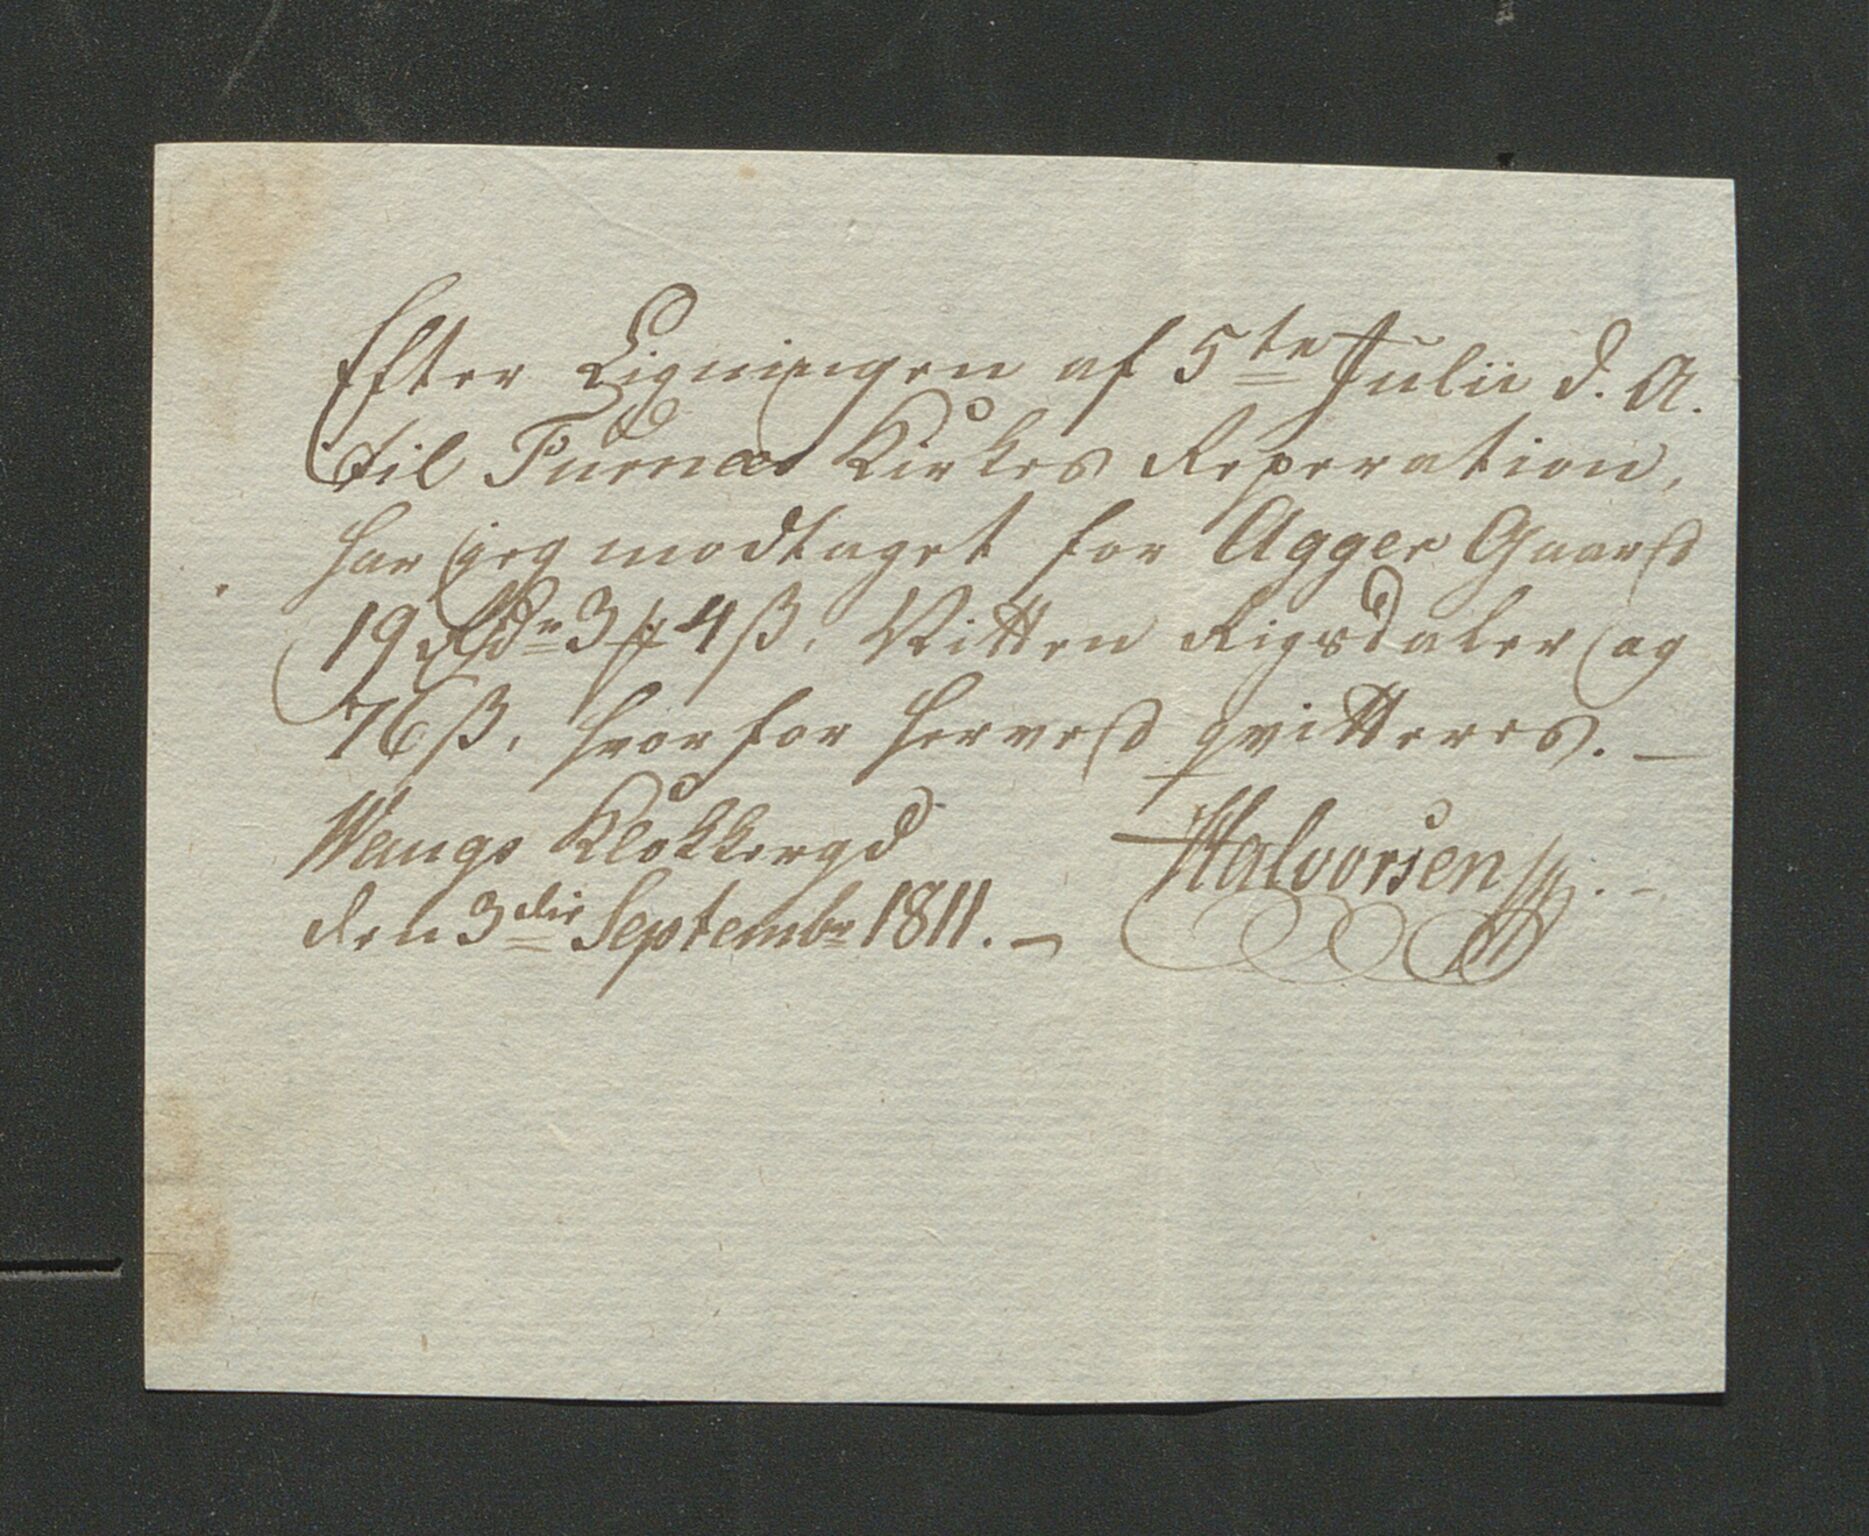 Efter Ligningen af 5te Julii d. A.
til Furnæs Kirkes Reperation,
har jeg modtaget for Agger Gaard
19 Rdr 3 ƒ 4 ß, Nitten Rigsdaler og
76 ß, hvorfor herved qvitteres. —
Wangs Klokkergd
den 3die Septembr 1811. —
Halvorsen